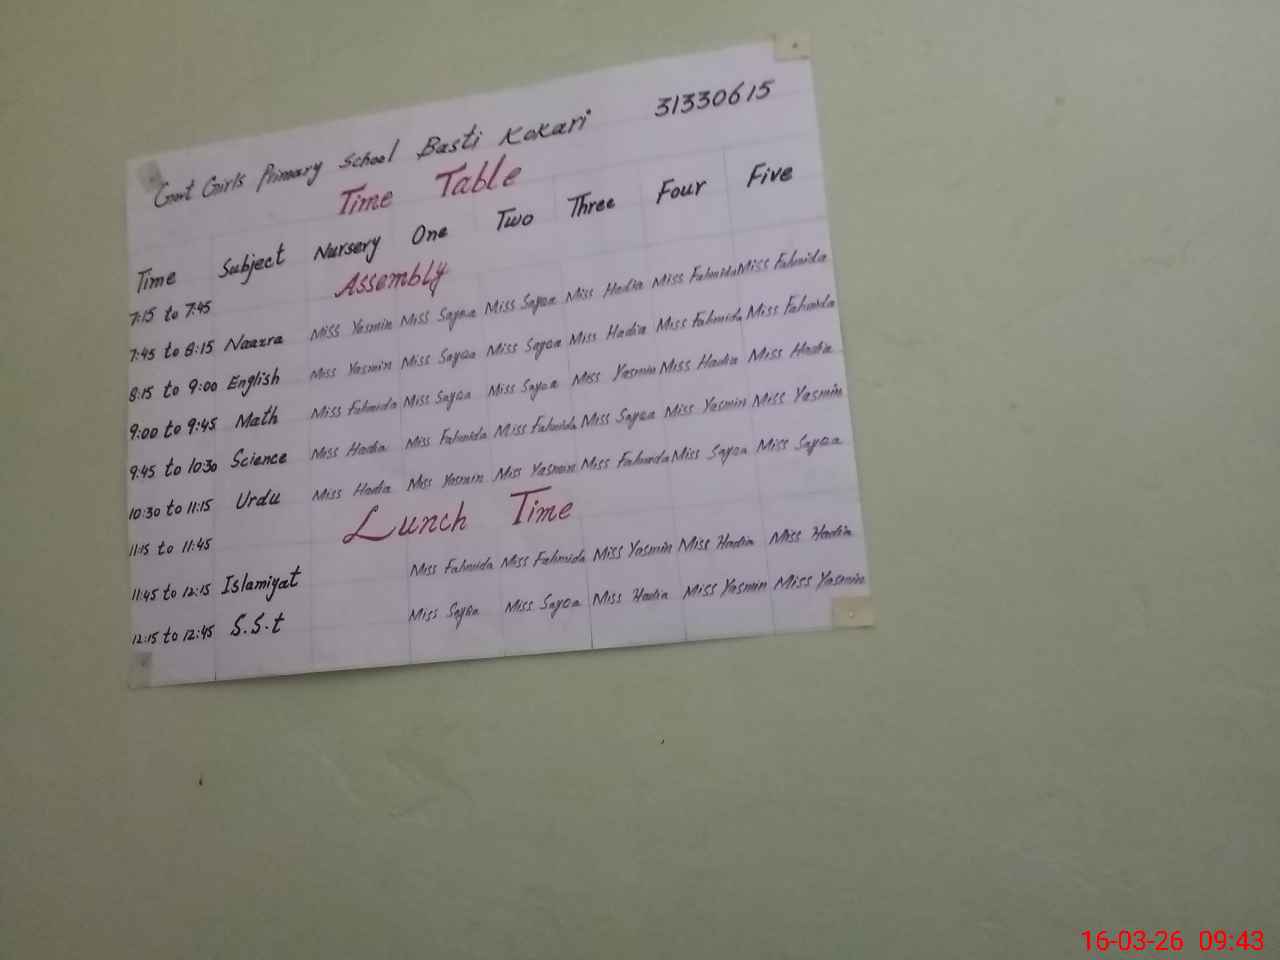 Govt Girls Primary School Basti Kokari 31330615
Time Table
Time Subject Nursery One Two Three Four Five
7:15 to 7:45 Assembly
7:45 to 8:15 Naazra Miss Yasmin Miss Sayqa Miss Sayqa Miss Hadia Miss Fahmida Miss Fahmida
8:15 to 9:00 English Miss Yasmin Miss Sayqa Miss Sayqa Miss Hadia Miss Fahmida Miss Fahmida
9:00 to 9:45 Math Miss Fahmida Miss Sayqa Miss Sayqa Miss Yasmin Miss Hadia Miss Hadia
9:45 to 10:30 Science Miss Hadia Miss Fahmida Miss Fahmida Miss Sayqa Miss Yasmin Miss Yasmin
10:30 to 11:15 Urdu Miss Hadia Miss Yasmin Miss Yasmin Miss Fahmida Miss Sayqa Miss Sayqa
11:15 to 11:45 Lunch Time
11:45 to 12:15 Islamiyat Miss Fahmida Miss Fahmida Miss Yasmin Miss Hadia Miss Hadia
12:15 to 12:45 S.S.t Miss Sayqa Miss Sayqa Miss Hadia Miss Yasmin Miss Yasmin
16-03-26 09:43